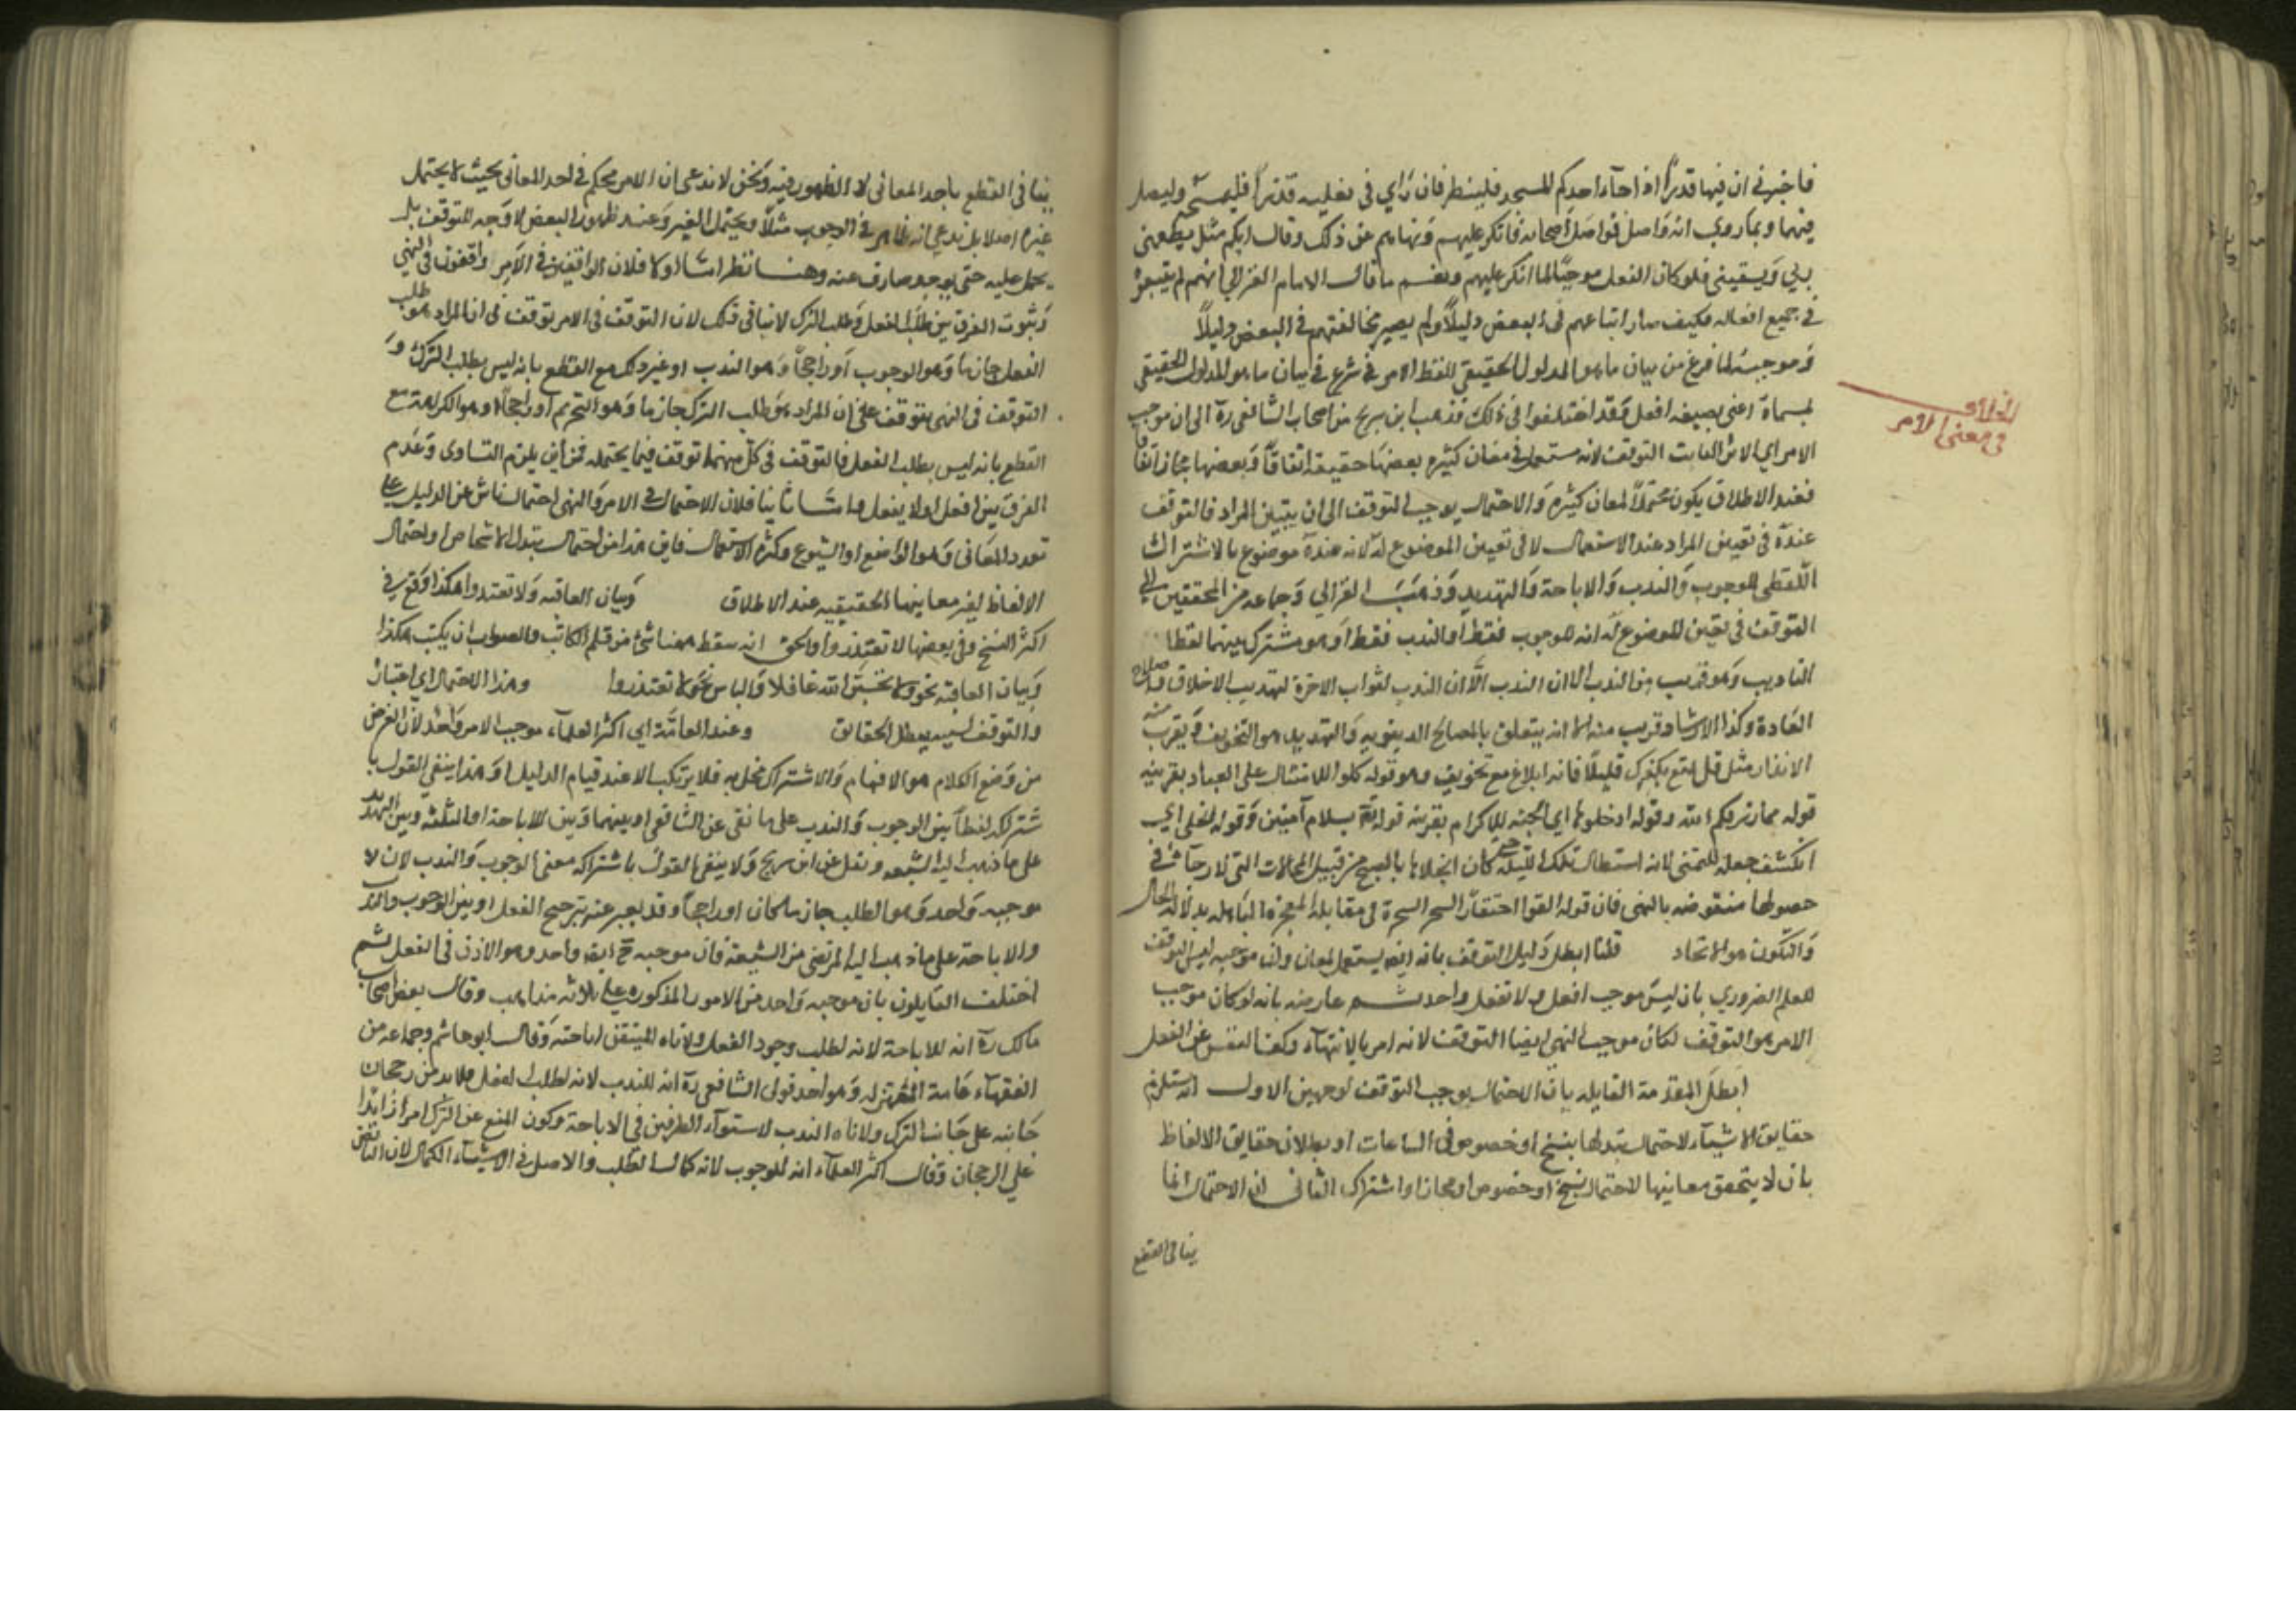 فاخبرني ان فيها قذرا اذا جآء احدكم المسجد فلينظر فان رأي في نعليه قذرا فليمسحه وليصل
فيهما وبما روي انه واصل فواصل اصحابه فانكر عليهم ونهاهم عن ذلك وقال ايكم مثلي يطعمني
ربي ويسقيني فلو كان الفعل موجبا لما انكر عليهم ونعم ما قال الامام الغزالي انهم لم يتبعوه
في جميع افعاله فكيف صار اتباعهم في البعض دليلا ولم يصير مخالفتهم في البعض دليلا
وموجبه لما فرغ من بيان ما هو المدلول الحقيقي للفظ الامر شرع في بيان ما هو المدلول الحقيقي
لمسماه اعني بصيغه افعل وقد اختلفوا في ذلك فذهب ابن سريج من اصحاب الشافعي ره الى ان موجب
الامر اي الاثر الثابت التوقف لانه مستعمل في معان كثيره بعضها حقيقه اتفاقا وبعضها مجاز اتفاقا
فعند الاطلاق يكون محتملا لمعان كثيره والاحتمال يوجب التوقف الى ان يتبين المراد فالتوقف
عنده في تعيين المراد عند الاستعمال لا في تعيين الموضوع له لانه عنده موضوع بالاشتراك
اللفظي للوجوب والندب والاباحة والتهديد وذهب الغزالي وجماعه من المحققين الي
التوقف في تعيين الموضوع له انه للوجوب فقط او الندب فقط او هو مشترك بينهما لفظا
التاديب وهو قريب من الندب الا ان الندب لثواب الاخرة لتهذيب الاخلاق واصلاح
العادة وكذا الارشاد قريب منه الا انه يتعلق بالمصالح الدينويه والتهديد هو التخويف ويقرب منه
الانذار مثل قل تمتع بكفرك قليلا فانه ابلاغ مع تخويف وهو قوله كلوا للامتنان على العباد بقرينه
قوله مما رزقكم الله وقوله ادخلوها اي الجنه للاكرام بقرينه قوله بسلام آمنين وقوله انجلي اي
انكشف جعله للتمني لانه استطال تلك الليلة حتي كان انجلاها بالصبح من قبيل المحالات التي لا رجآء في
حصولها قوله القوا احتقار السحر السحرة في مقابلة المعجزة الباهره بدلالة الحال
والتكون هو الاتحاد قلنا ابطل دليل التوقف بانه ايضا يستعمل لمعان وليس موجبه التوقف
للعلم الضروري بان ليس موجب افعل ولا تفعل واحد ثم عارضه بانه لو كان موجب
الامر هو التوقف لكان موجب النهي ايضا التوقف لانه امر بالانتهآء وكف النفس عن الفعل
ابطل المقدمة القايله بان الاحتمال يوجب التوقف لوجهين الاول انه يستلزم
حقايق الاشيآء لاحتمال تبدلها بنسخ او خصوص في الساعات او بطلان حقايق الالفاظ
بان لا يتحقق معاينها لاحتمال نسخ او خصوص او مجاز او اشتراك الثاني ان الاحتمال انما
ينافي القطع
الخلاف
في معنى الامر
ينافي القطع باحد المعاني لا الظهور فيه ونحن لا ندعي ان الامر محكم في احد المعاني بحيث لا يحتمل
غيره اصلا بل ندعي انه ظاهر في الوجوب مثلا ويحتمل الغير وعند ظهور البعض لا وجه للتوقف بل
يحمل عليه حتى يوجد صارف عنه وههنا نظر اما اولا فلان الواقفين في الامر واقفون في النهي
وثبوت الفرق بين طلب الفعل وطلب الترك لا ينافي ذلك لان التوقف في الامر توقف في ان المراد هو طلب
الفعل جازما وهو الوجوب او راجحا وهو الندب او غير ذلك مع القطع بانه ليس بطلب الترك و
التوقف في النهي توقف على ان المراد هو طلب الترك جازما وهو التحريم او راجحا وهو الكراهة مع
القطع بانه ليس بطلب الفعل فالتوقف في كل منهما توقف فيما يحتمله فمن اين يلزم التساوي وعدم
الفرق بين افعل ولا تفعل واما ثانيا فلان الاحتمال في الامر والنهي احتمال ناش عن الدليل على
تعدد المعاني وهو الوضع او الشيوع وكثرة الاستعمال فاين هذا من احتمال تبدل الاشخاص او احتمال
الالفاظ لغير معاينها الحقيقيه عند الاطلاق وبيان العاقبه ولا تعتدوا هكذا وقع في
اكثر النسخ وفي بعضها لا تعتذروا والحق انه سقط ههنا شئ من قلم الكاتب والصواب ان يكتب هكذا
وبيان العاقبه نحو ولا تحسبن الله غافلا والياس نحو لا تعتذروا وهذا الاحتمال اي اعتبار
وعند العامة اي اكثر العلمآء موجب الامر واحد لان الغرض
من وضع الكلام هو الافهام والاشتراك مخل به فلا يرتكب الا عند قيام الدليل وهذا ينفي القول با
شتراكه لفظا بين الوجوب والندب على ما نقل عن الشافعي او بينهما وبين الاباحة او الثلثه وبين التهديد
على ما ذهب اليه الشيعه ونقل عن ابن سريج ولا ينفي القول باشتراكه معنى الوجوب والندب لان لا
موجبه واحد وهو الطلب جازما كان او راجحا وقد يعبر عنه بترجيح الفعل او بين الوجوب والندب
والاباحة على ما ذهب اليه المرتضى من الشيعة فان موجبه ح ايضا واحد وهو الاذن في الفعل ثم
اختلف القايلون بان موجبه واحد من الامور المذكوره على ثلاثه مذاهب وقال بعض اصحاب
مالك ره انه للاباحة لانه لطلب وجود الفعل وادناه المتيقن اباحته وقال ابو هاشم وجماعه من
الفقهآء عامة المعتزله وهو احد قولي الشافعي ره انه للندب لانه لطلب الفعل فلا بد من رجحان
جانبه على جانب الترك وادناه الندب لاستوآء الطرفين في الاباحة وكون المنع عن الترك امرا زايدا
علي الرجحان وقال اكثر العلمآء انه للوجوب لانه كمال الطلب والاصل في الاشيآء الكمال لان الناقص